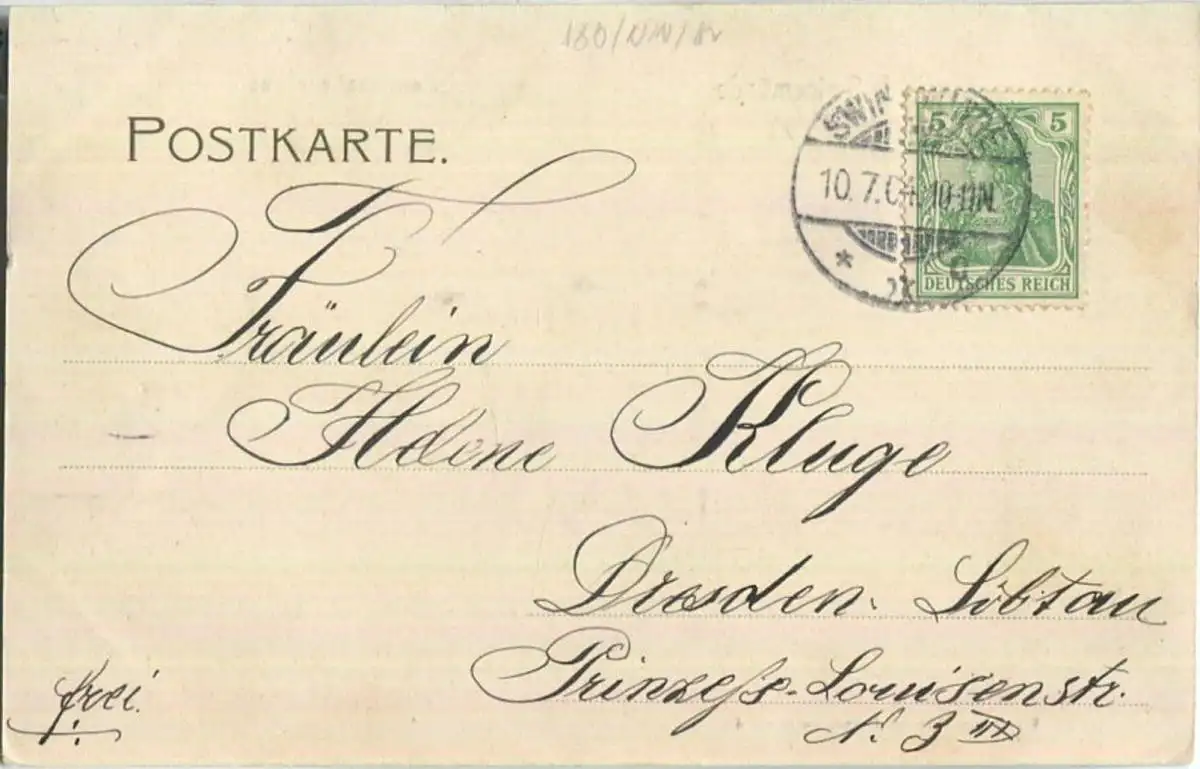 180/NW/82
POSTKARTE.
SWINEMÜNDE
10.7.04. 10-11N.
* 2x c
5 5
DEUTSCHES REICH
Fräulein
Helene Kluge
Dresden. Löbtau
Prinzeß-Louisenstr.
N. 3 III
frei.